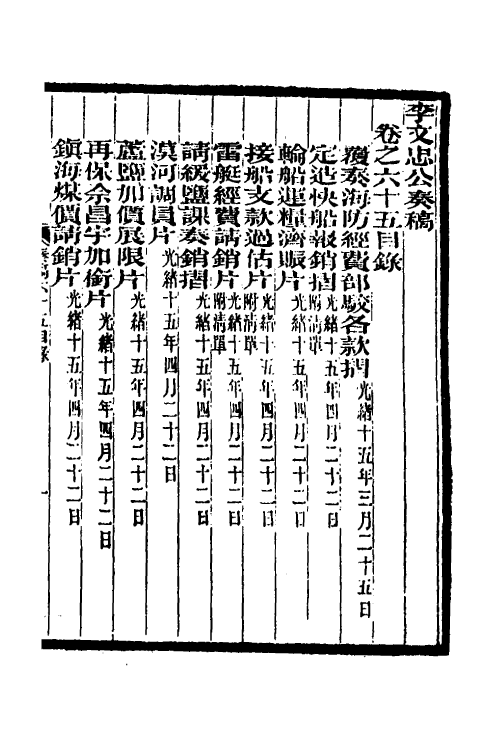 李文忠公奏稿
卷之六十五目錄
覆奏海防經費部駁各款摺光緒十五年三月二十五日
定造快船報銷摺附清單光緒十五年四月二十二日
輪船運糧濟賑片光緒十五年四月二十二日
接船支款過估片附清單光緒十五年四月二十二日
雷艇經費請銷片附清單光緒十五年四月二十二日
請緩鹽課奏銷摺光緒十五年四月二十二日
漠河調員片光緒十五年四月二十二日
蘆鹽加價展限片光緒十五年四月二十二日
再保佘昌宇加銜片光緒十五年四月二十二日
鎮海煤價請銷片光緒十五年四月二十二日
奏稿六十五目錄
一